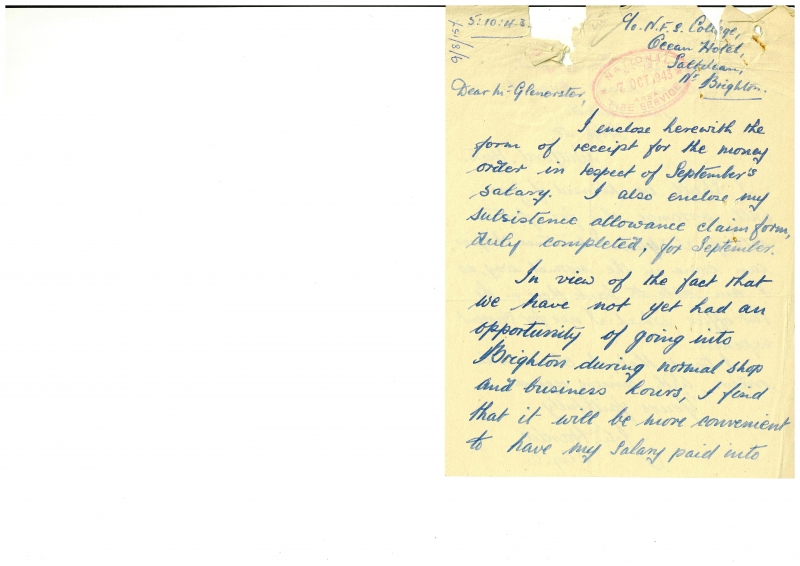 9/8/15f
5.10.43.
C/o. N.F.S. College,
Ocean Hotel,
Saltdean,
Nr Brighton.
NATIONAL
7 OCT 1943
FIRE SERVICE
Dear Mr Glenerster,
I enclose herewith the
form of receipt for the money
order in respect of September's
salary. I also enclose my
subsistence allowance claim form,
duly completed, for September.
In view of the fact that
we have not yet had an
opportunity of going into
Brighton during normal shop
and business hours, I find
that it will be more convenient
to have my salary paid into